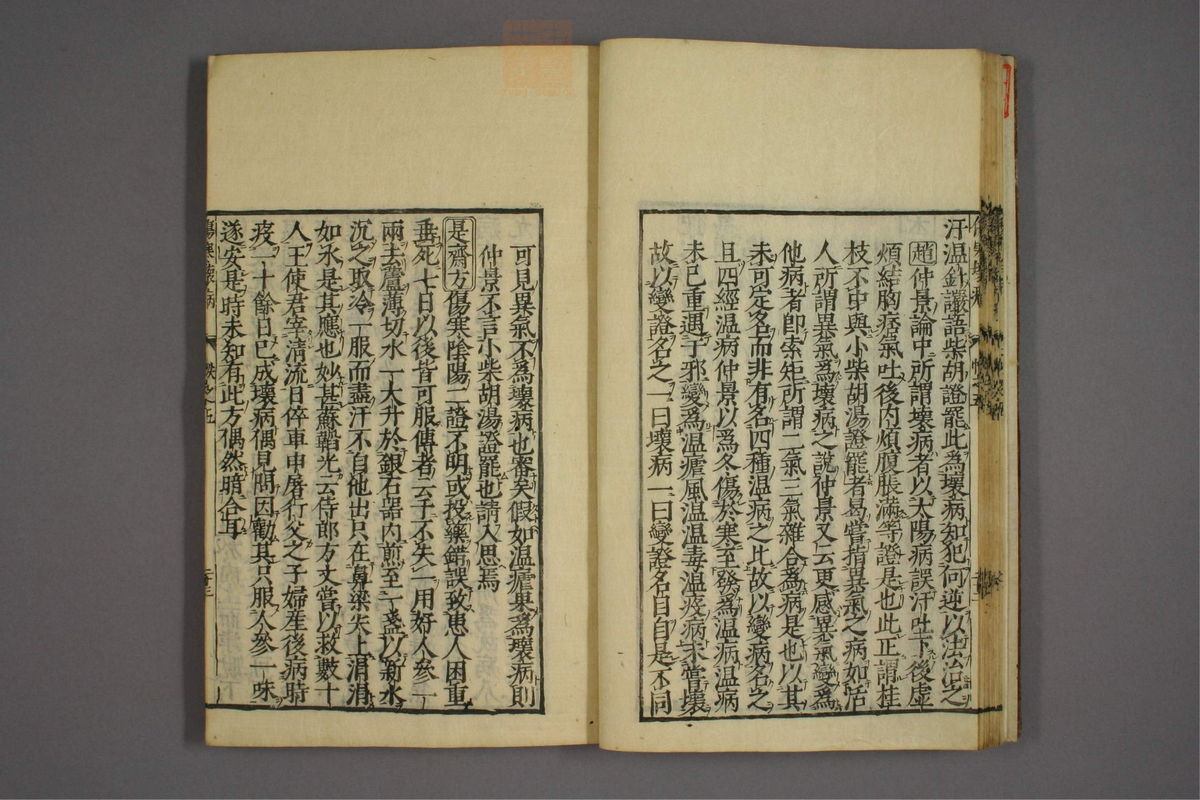 汗温針讝語柴胡證罷此為壞病知犯何逆以法治之
趙仲景論中所謂壞病者以太陽病誤汗吐下後虚
煩結胸痞氣吐後内煩腹脹滿等證是也此正謂桂
枝不中與小柴胡湯證罷者曷嘗指異氣之病如活
人所謂異氣為壞病之說仲景又云更感異氣變為
他病者即索矩所謂二氣三氣雜合為病是也以其
未可定名而非有名四種温病之比故以變病名之
且四經温病仲景以為冬傷於寒至發為温病温病
未已重遇于邪變為温瘧風温温毒温疫病未嘗壞
故以變證名之一曰壞病一曰變證名自自是不同
可見異氣不為壞病也審矣假如温瘧果為壞病則
仲景不言小柴胡湯證罷也請人思焉
是齋方傷寒陰陽二證不明或投藥錯誤致患人困重
垂死七日以後皆可服傳者云千不失一用好人參一
兩去蘆薄切水一大升於銀石器内煎至一盞以新水
沉之取冷一服而盡汗不自他出只在鼻梁尖上涓涓
如水是其應也妙甚蘇韜光云侍郎方丈嘗以救數十
人王使君宰清流日倅車申屠行父之子婦産後病時
疫二十餘日已成壞病偶見問因勸其只服人參一味
遂安是時未知有此方偶然暗合耳
傷寒壞病